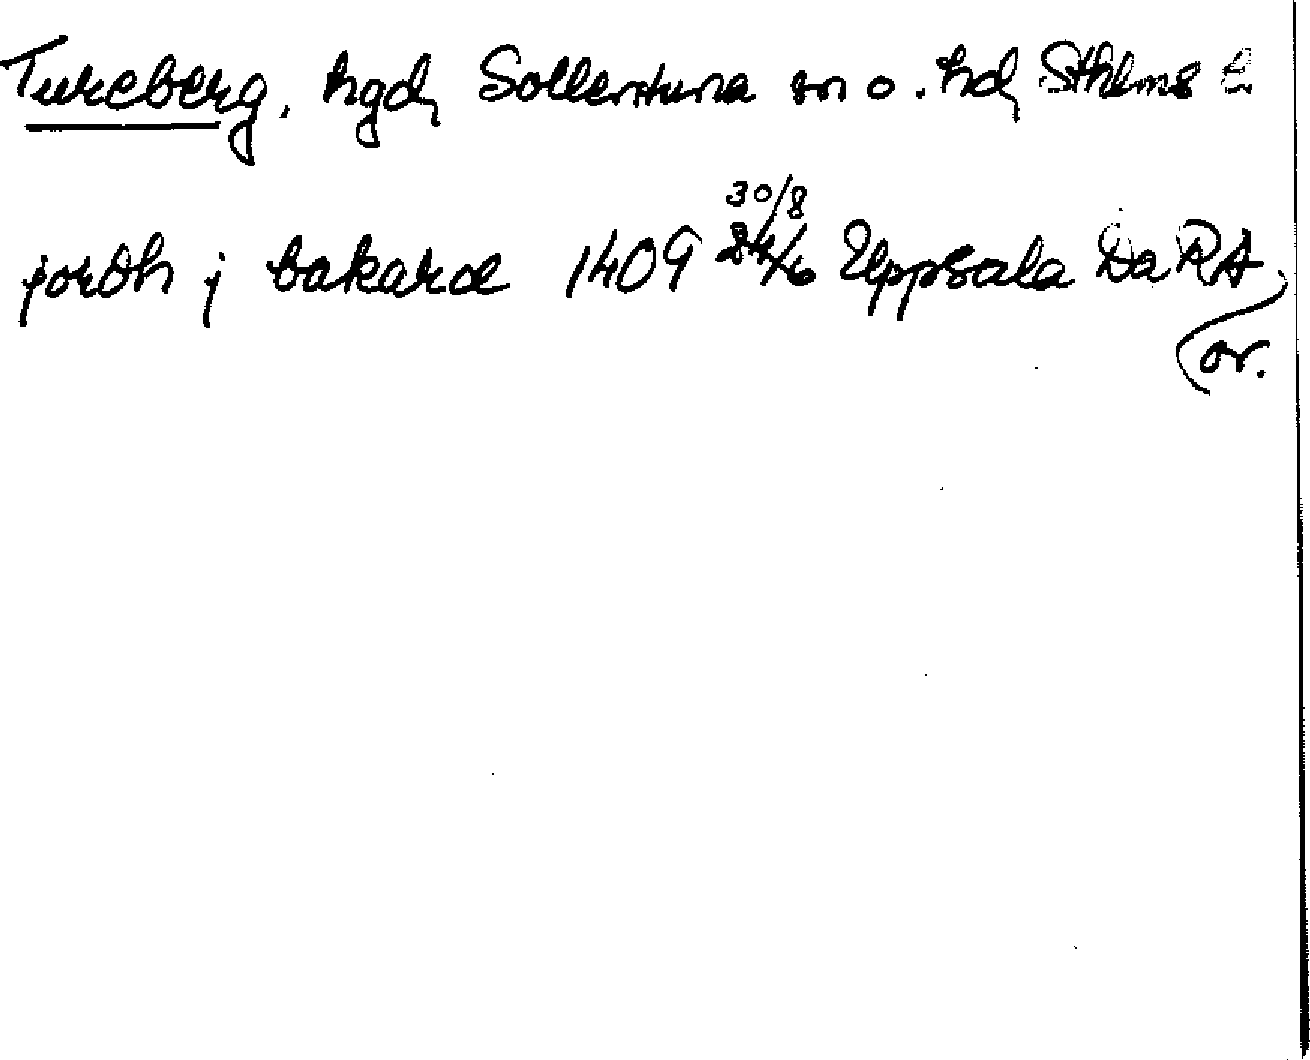 Tureberg, hgd, Sollentuna sn o. hd, Sthlms l
30/8
jordh j bakarce 1409 24/6 Uppsala Da RA,
or.